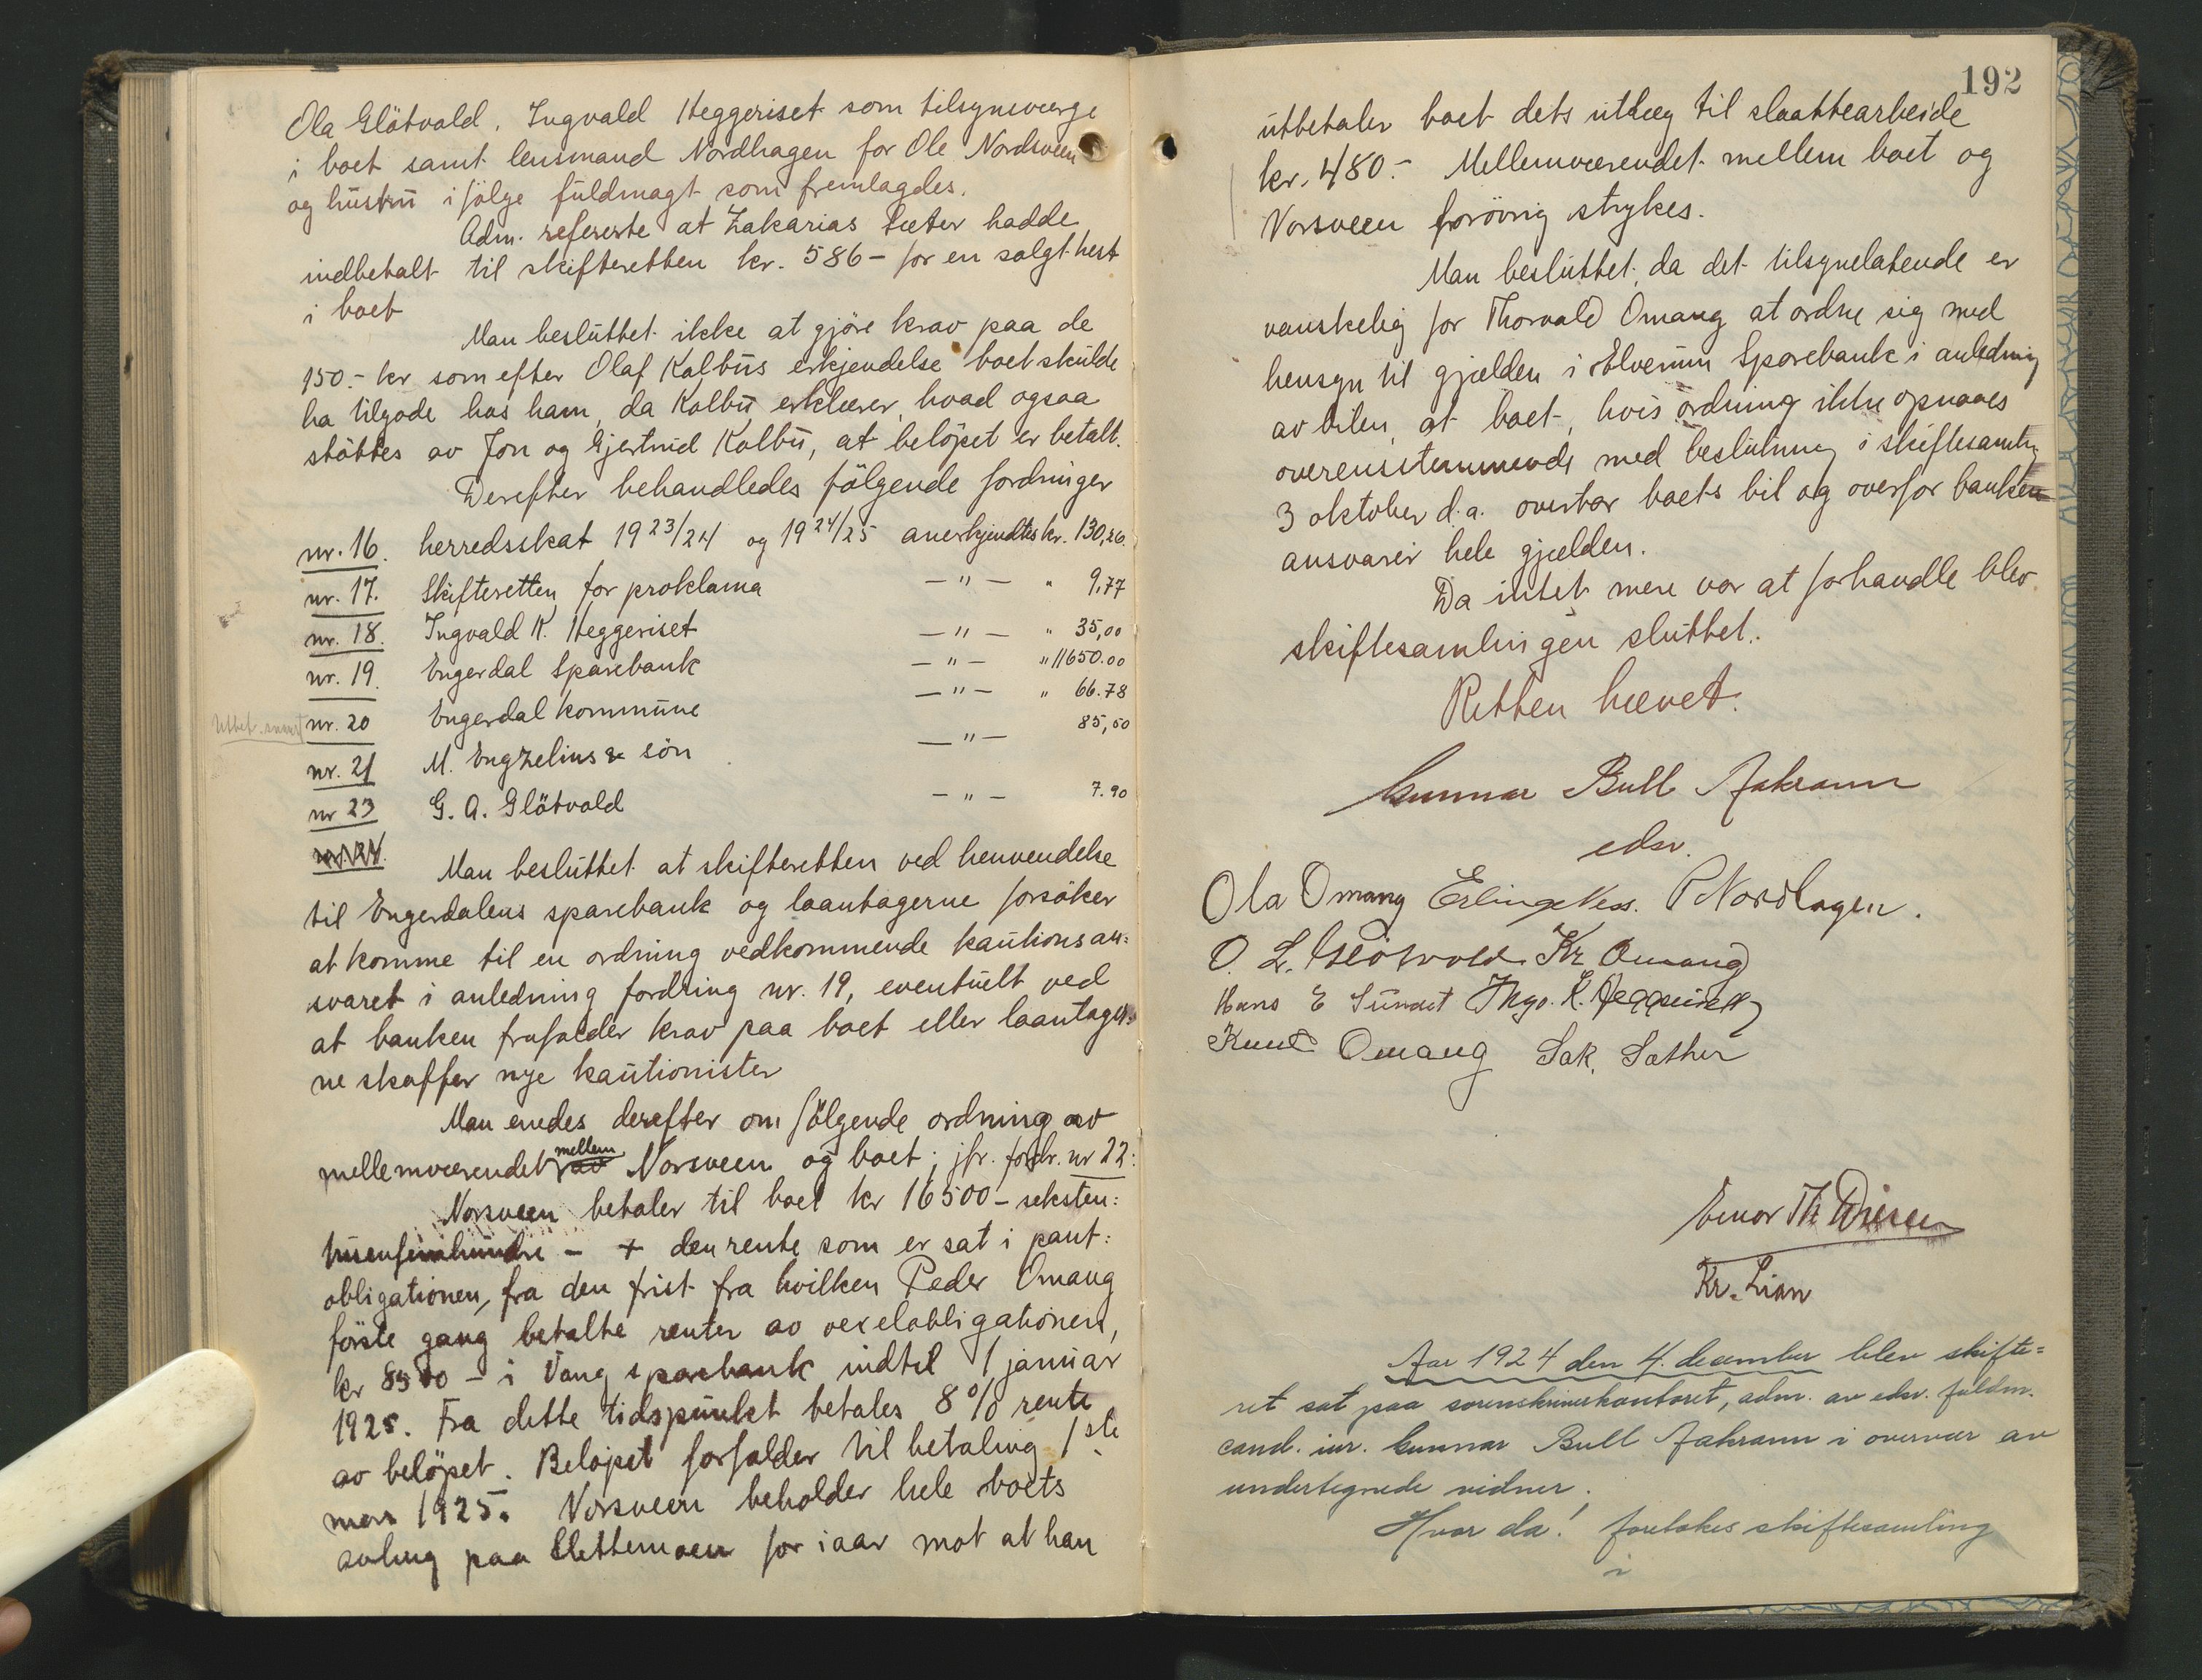 Ola Glötvold. Ingvald Heggeriset som tilsynsverge
i boet samt lensmand Nordhagen for Ole Nordsveen
og hustru ifölge fuldmagt som fremlagdes.
Adm. refererte at Zakarias Sæter hadde
indbetalt til skifteretten kr. 586- for en solgt hest
i boet
Man besluttet ikke at gjöre krav paa de
150.- kr som efter Olaf Kolbus erkjendelse boet skulde
ha tilgode hos ham, da Kolbu erklærer, hvad ogsaa
stöttes av Jon og Gjertrud Kolbu, at belöpet er betalt.
Derefter behandledes fölgende fordringer
nr. 16. herredsskat 1923/24 og 1924/25 anerkjendtes kr. 130,26.
nr. 17. Skifteretten for proklama — " — " 9,77
nr. 18. Ingvald K. Heggeriset — " — " 35,00
nr. 19. Engerdal Sparebank — " — " 11650.00
Utbet. nr. 20 Engerdal kommune — " — " 66.78
nr. 21 M. Engzelius & sön — " — 85,50
nr 23 G. A. Glötvold — " — 7.90
nr. 24.
Man besluttet at skifteretten ved henvendelse
til Engerdalens sparebank og laantagerne forsöker
at komme til en ordning vedkommende kautionsan=
svaret i anledning fordring nr. 19, eventuelt ved
at banken frafalder krav paa boet eller laantager=
ne skaffer nye kautionister
Man enedes derefter om fölgende ordning av
mellemværendet av mellem Norsveen og boet; jfr. fordr. nr 22:
Norsveen betaler til boet kr 16500 - seksten:
tusenfemhundre - + den rente som er sat i pant:
obligationen, fra den frist fra hvilken Peder Omang
förste gang betalte renter av vexelobligationen,
kr 8500 - i Vang sparebank indtil 1 januar
1925. Fra dette tidspunkt betales 8% rente
av belöpet. Belöpet forfalder til betaling 1ste
mars 1925. Norsveen beholder hele boets
avling paa Slettemoen for iaar mot at han
192
utbetaler boet dets utlæg til slaattearbeide
kr. 480.- Mellemværendet mellem boet og
Norsveen forövrig strykes.
Man besluttet, da det tilsynelatende er
vanskelig for Thorvald Omang at ordne sig med
hensyn til gjælden i Elverum Sparebank i anledning
av bilen, at boet, hvis ordning ikke opnaaes
overensstemmende med beslutning i skiftesamling
3 oktober d.a. overtar boets bil og overfor banken
ansvarer hele gjælden.
Da intet mere var at forhandle blev
skiftesamlingen sluttet.
Retten hævet.
Gunnar Bull Aakrann
edsv.
Ola Omang Erling Ness. P Nordhagen.
O. L. Glötvold Kr Omang
Hans E Sundet Ingv. K. Heggeriset
Knut Omang Sak. Sæther
Einar Th Diesen
Kr. Lian
Aar 1924 den 4. december blev skifte=
ret sat paa sorenskriverkontoret, adm. av edsv. fuldm.
cand. jur. Gunnar Bull Aakrann i overvær av
undertegnede vidner.
Hvor da! foretokes skiftesamling
i